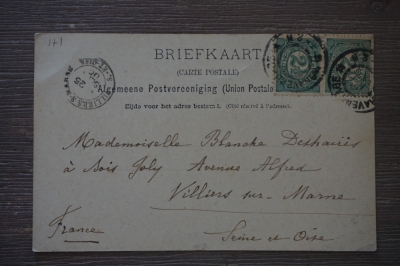 171
BRIEFKAART
(CARTE POSTALE)
Algemeene Postvereeniging (Union Postale
Zijde voor het adres bestemd. (Côté réservé à l'adresse).
2½
Mademoiselle Blanche Deshairès
à Bois Joly Avenue Alfred
Villiers sur Marne
France
Seine et Oise